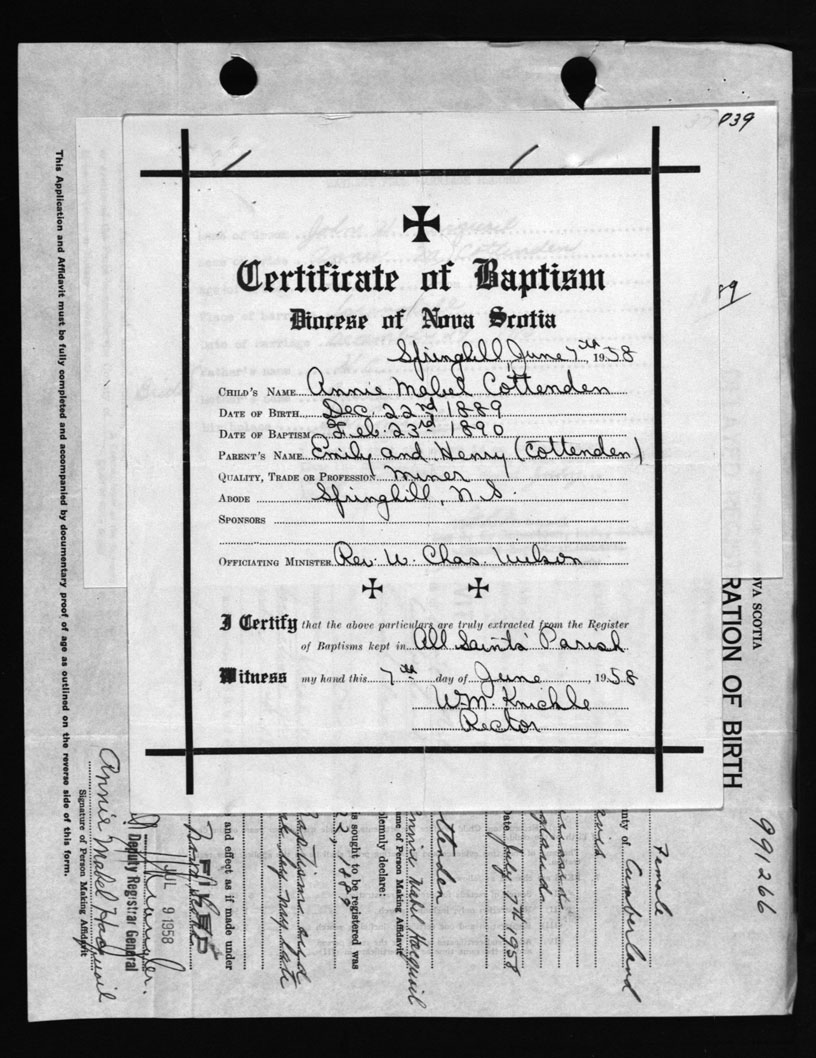 P39
Certificate of Baptism
Diocese of Nova Scotia
Springhill, June 7th, 1958
CHILD'S NAME Annie Mabel Cottenden
DATE OF BIRTH Dec. 22nd 1889
DATE OF BAPTISM Feb. 23rd 1890
PARENT'S NAME Emily and Henry (Cottenden)
QUALITY, TRADE OR PROFESSION Miner
ABODE Springhill, N.S.
SPONSORS
OFFICIATING MINISTER Rev. W. Chas. Wilson
I Certify that the above particulars are truly extracted from the Register
of Baptisms kept in All Saints' Parish
Witness my hand this 7th day of June, 1958
Wm. Knickle
Rector
This Application and Affidavit must be fully completed and accompanied by documentary proof of age as outlined on the reverse side of this form.
OVA SCOTIA
RATION OF BIRTH
991266
Female
unty of Cumberland
Date July 7th 1958
ttenden
nnie Mabel Hacquoil
ame of Person Making Affidavit
lemnly declare:
is sought to be registered was
22, 1889
Baptisms and
my late
and effect as if made under
FILED
JUL 9 1958
Deputy Registrar General
Annie Mabel Hacquoil
Signature of Person Making Affidavit